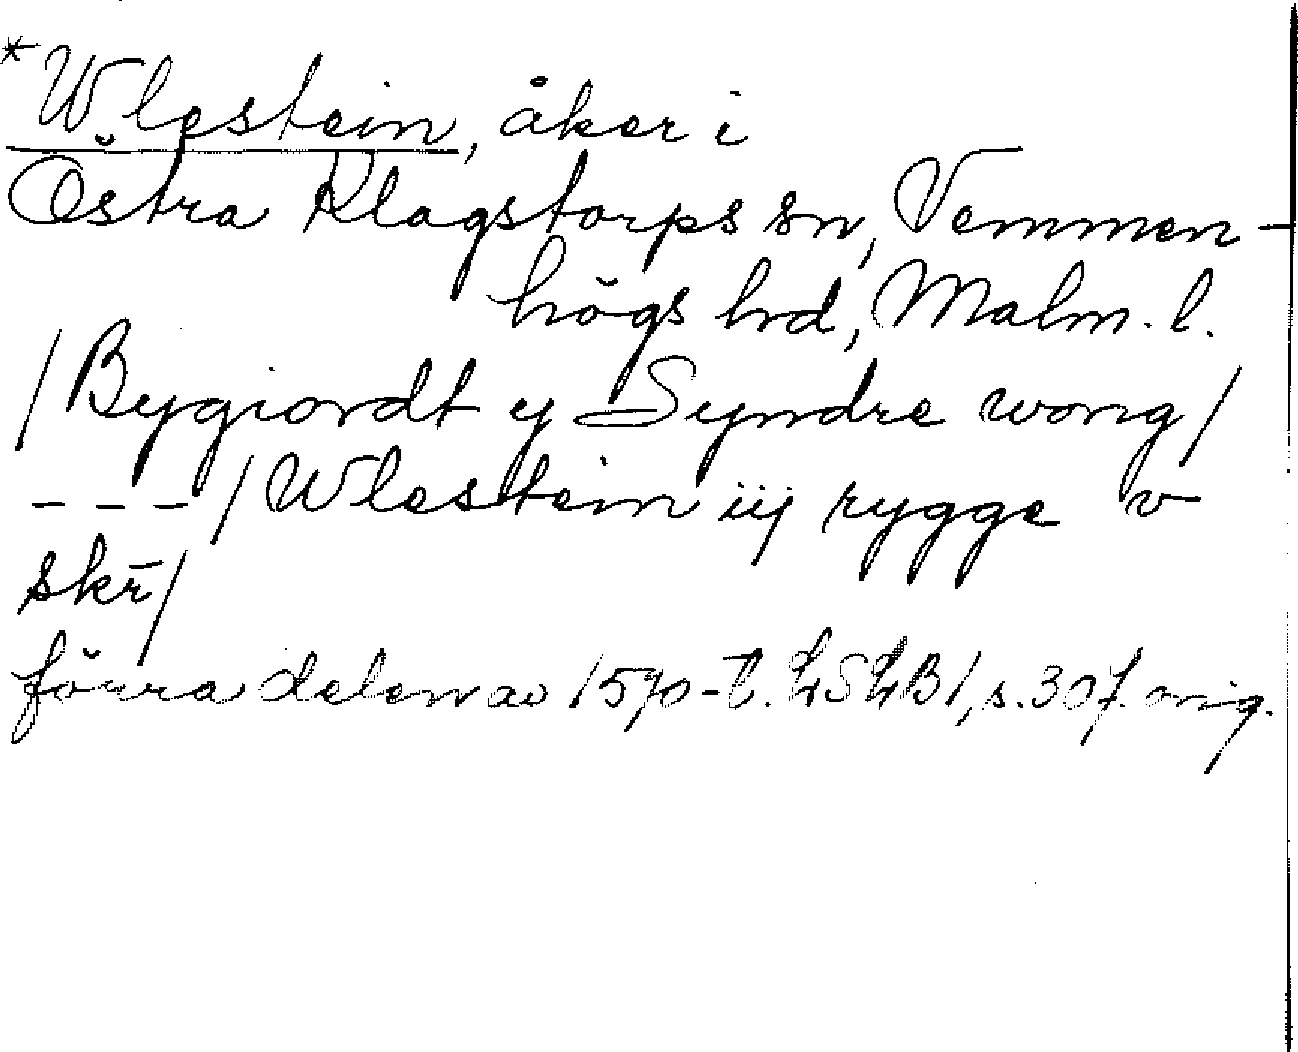 *Wlestein, åker i
Östra Klagstorps sn, Vemmen-
högs hd, Malm. l.
/Bygiordt y Syndre wong/
- - - /Wlestein iij rygge v
skr̄/
förra delen av 1570-t. LSLB1, s. 307. orig.